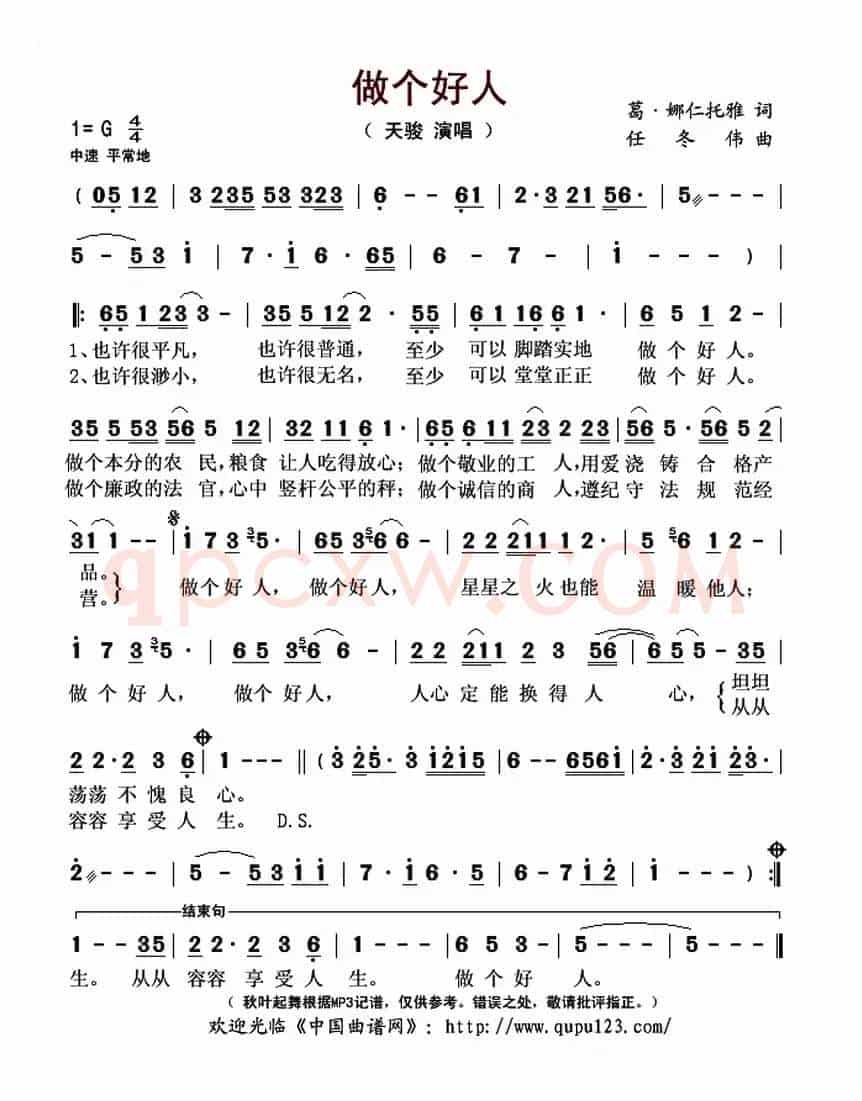 做个好人
1= G 4/4
（ 天骏 演唱 ）
葛·娜仁托雅 词
中速 平常地
任 冬 伟 曲
( 05 12 | 3 235 53 323 | 6 - - 61 | 2·3 21 56· | 5 - - - |
5 - 53 1 | 7·1 6·65 | 6 - 7 - | 1 - - - ) |
‖: 65 1 23 3 - | 35 5 12 2· 55 | 61 16 61· | 6 5 1 2 - |
1、也许很平凡， 也许很普通， 至少 可以 脚踏实地 做 个 好 人。
2、也许很渺小， 也许很无名， 至少 可以 堂堂正正 做 个 好 人。
35 5 53 56 5 12 | 32 11 6 1· | 65 6 11 23 2 23 | 56 5·56 5 2 |
做个本分的农 民，粮食 让人吃得放心；做个敬业的工 人，用爱 浇 铸 合 格产
做个廉政的法 官，心中 竖杆公平的秤；做个诚信的商 人，遵纪 守 法 规 范经
31 1 - - | 1 7 3 5· | 65 3 6 6 - | 2 2 211 12· | 5 6 1 2 - |
品。 做个 好 人， 做个好人， 星星之 火也能 温 暖 他人；
营。
1 7 3 5· | 65 3 6 6 - | 2 2 211 2 3 56 | 6 5 5 - 35 |
做 个 好 人， 做个 好人， 人心 定 能 换 得 人 心， 坦坦
从从
2 2·2 3 6 | 1 - - - ‖ ( 3 25·3 1215 | 6 - - 6561 | 2·3 21 23· |
荡荡 不 愧 良 心。
容容 享 受 人 生。 D.S.
2 - - - | 5 - 53 1 1 | 7·1 6·5 | 6 - 7 12 | 1 - - - ) :‖
结束句
1 - - 35 | 2 2·2 3 6 | 1 - - - | 6 5 3 - | 5 - - - | 5 - - - ‖
生。 从从 容容 享 受 人 生。 做 个 好 人。
（ 秋叶起舞根据MP3记谱，仅供参考。错误之处，敬请批评指正。）
欢迎光临《中国曲谱网》：http://www.qupu123.com/
qpcxw.COM